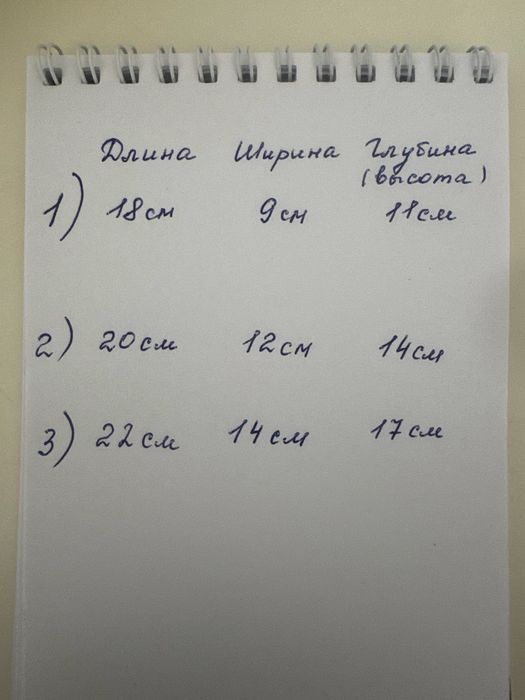 Длина Ширина Глубина
(высота)
1) 18см 9см 11см
2) 20см 12см 14см
3) 22см 14см 17см